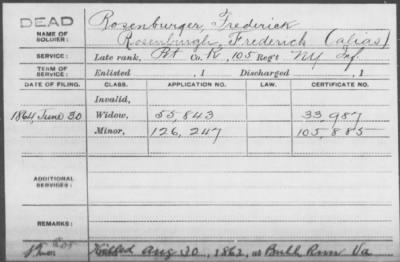 DEAD
Rosenburger, Frederick
NAME OF SOLDIER:
Rosenburgh, Frederick (alias)
SERVICE: Late rank, Pvt Co. K, 105 Reg't NY Inf.
TERM OF SERVICE: Enlisted , 1 Discharged , 1
DATE OF FILING. CLASS. APPLICATION NO. CERTIFICATE NO.
Invalid,
1864, June 30 Widow, 55,843 33,987
Minor, 126,247 105,885
ADDITIONAL SERVICES:
REMARKS:
Killed Aug 30, 1862, at Bull Run Va